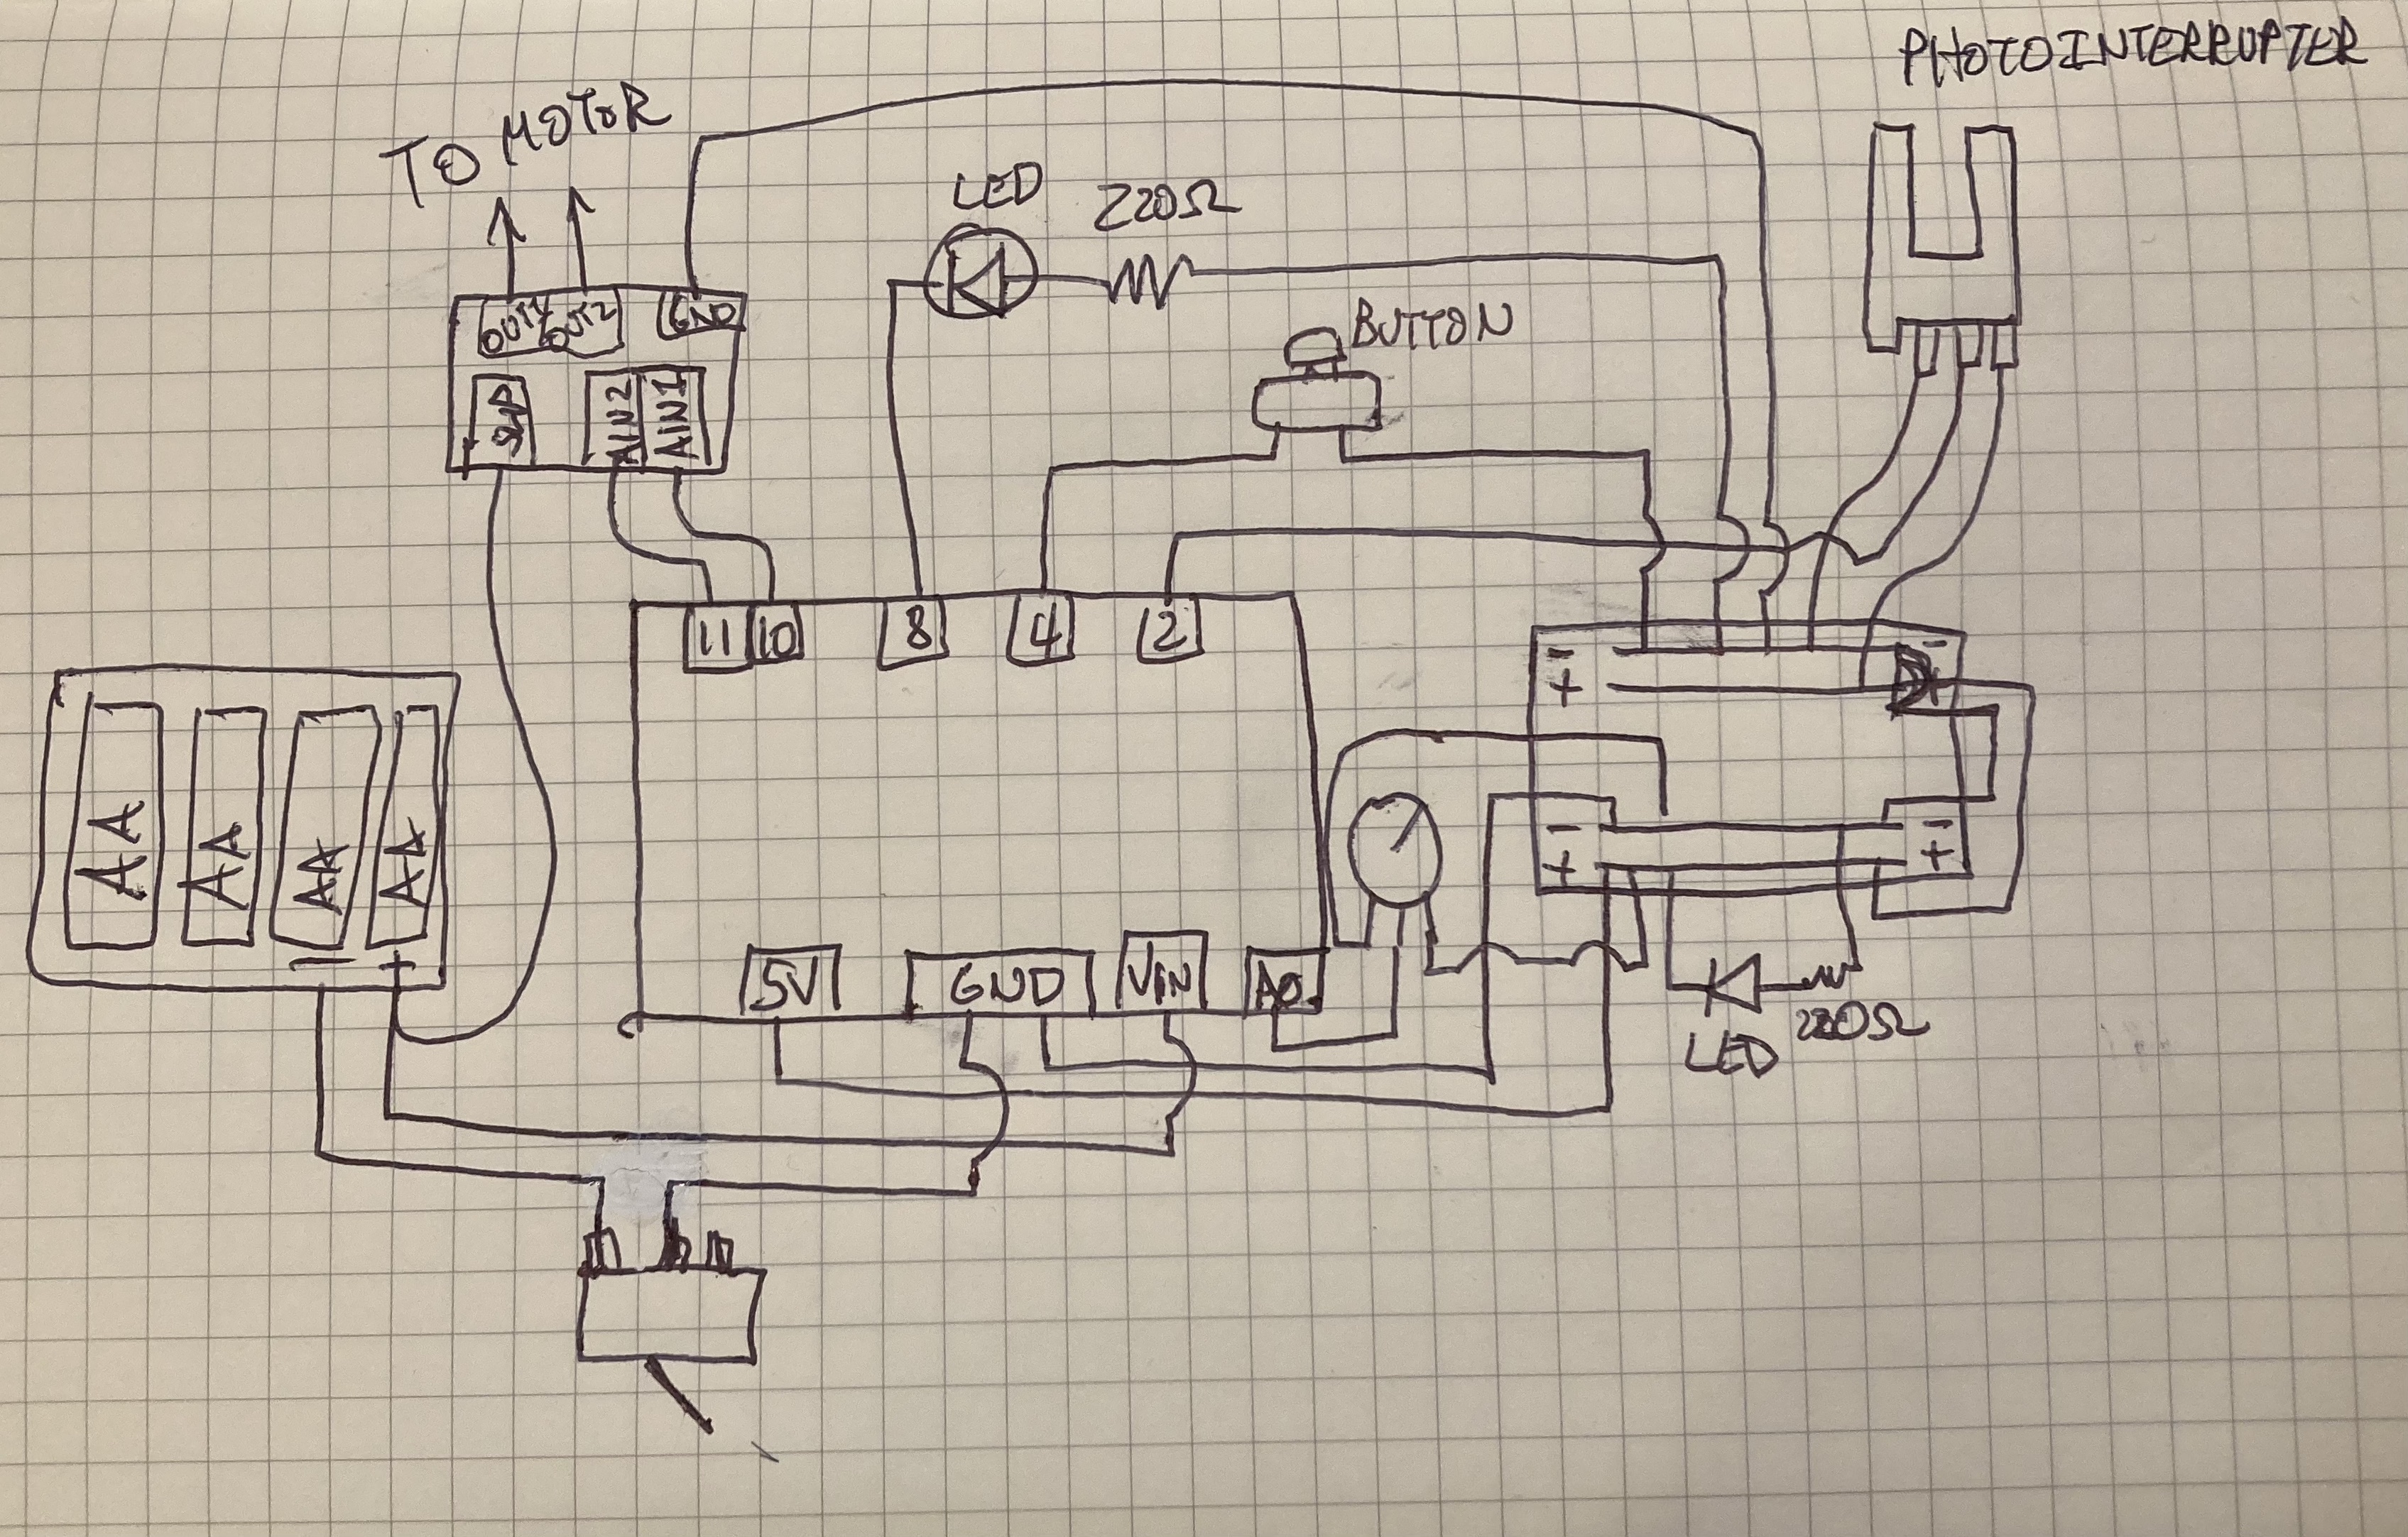 PHOTOINTERRUPTER
TO MOTOR
LED
220Ω
BUTTON
OUT1 OUT2 GND
AIN2 AIN1
11 10 8 4 2
- -
+
AA AA AA AA
- +
- -
+ +
5V GND VIN A0
220Ω
LED